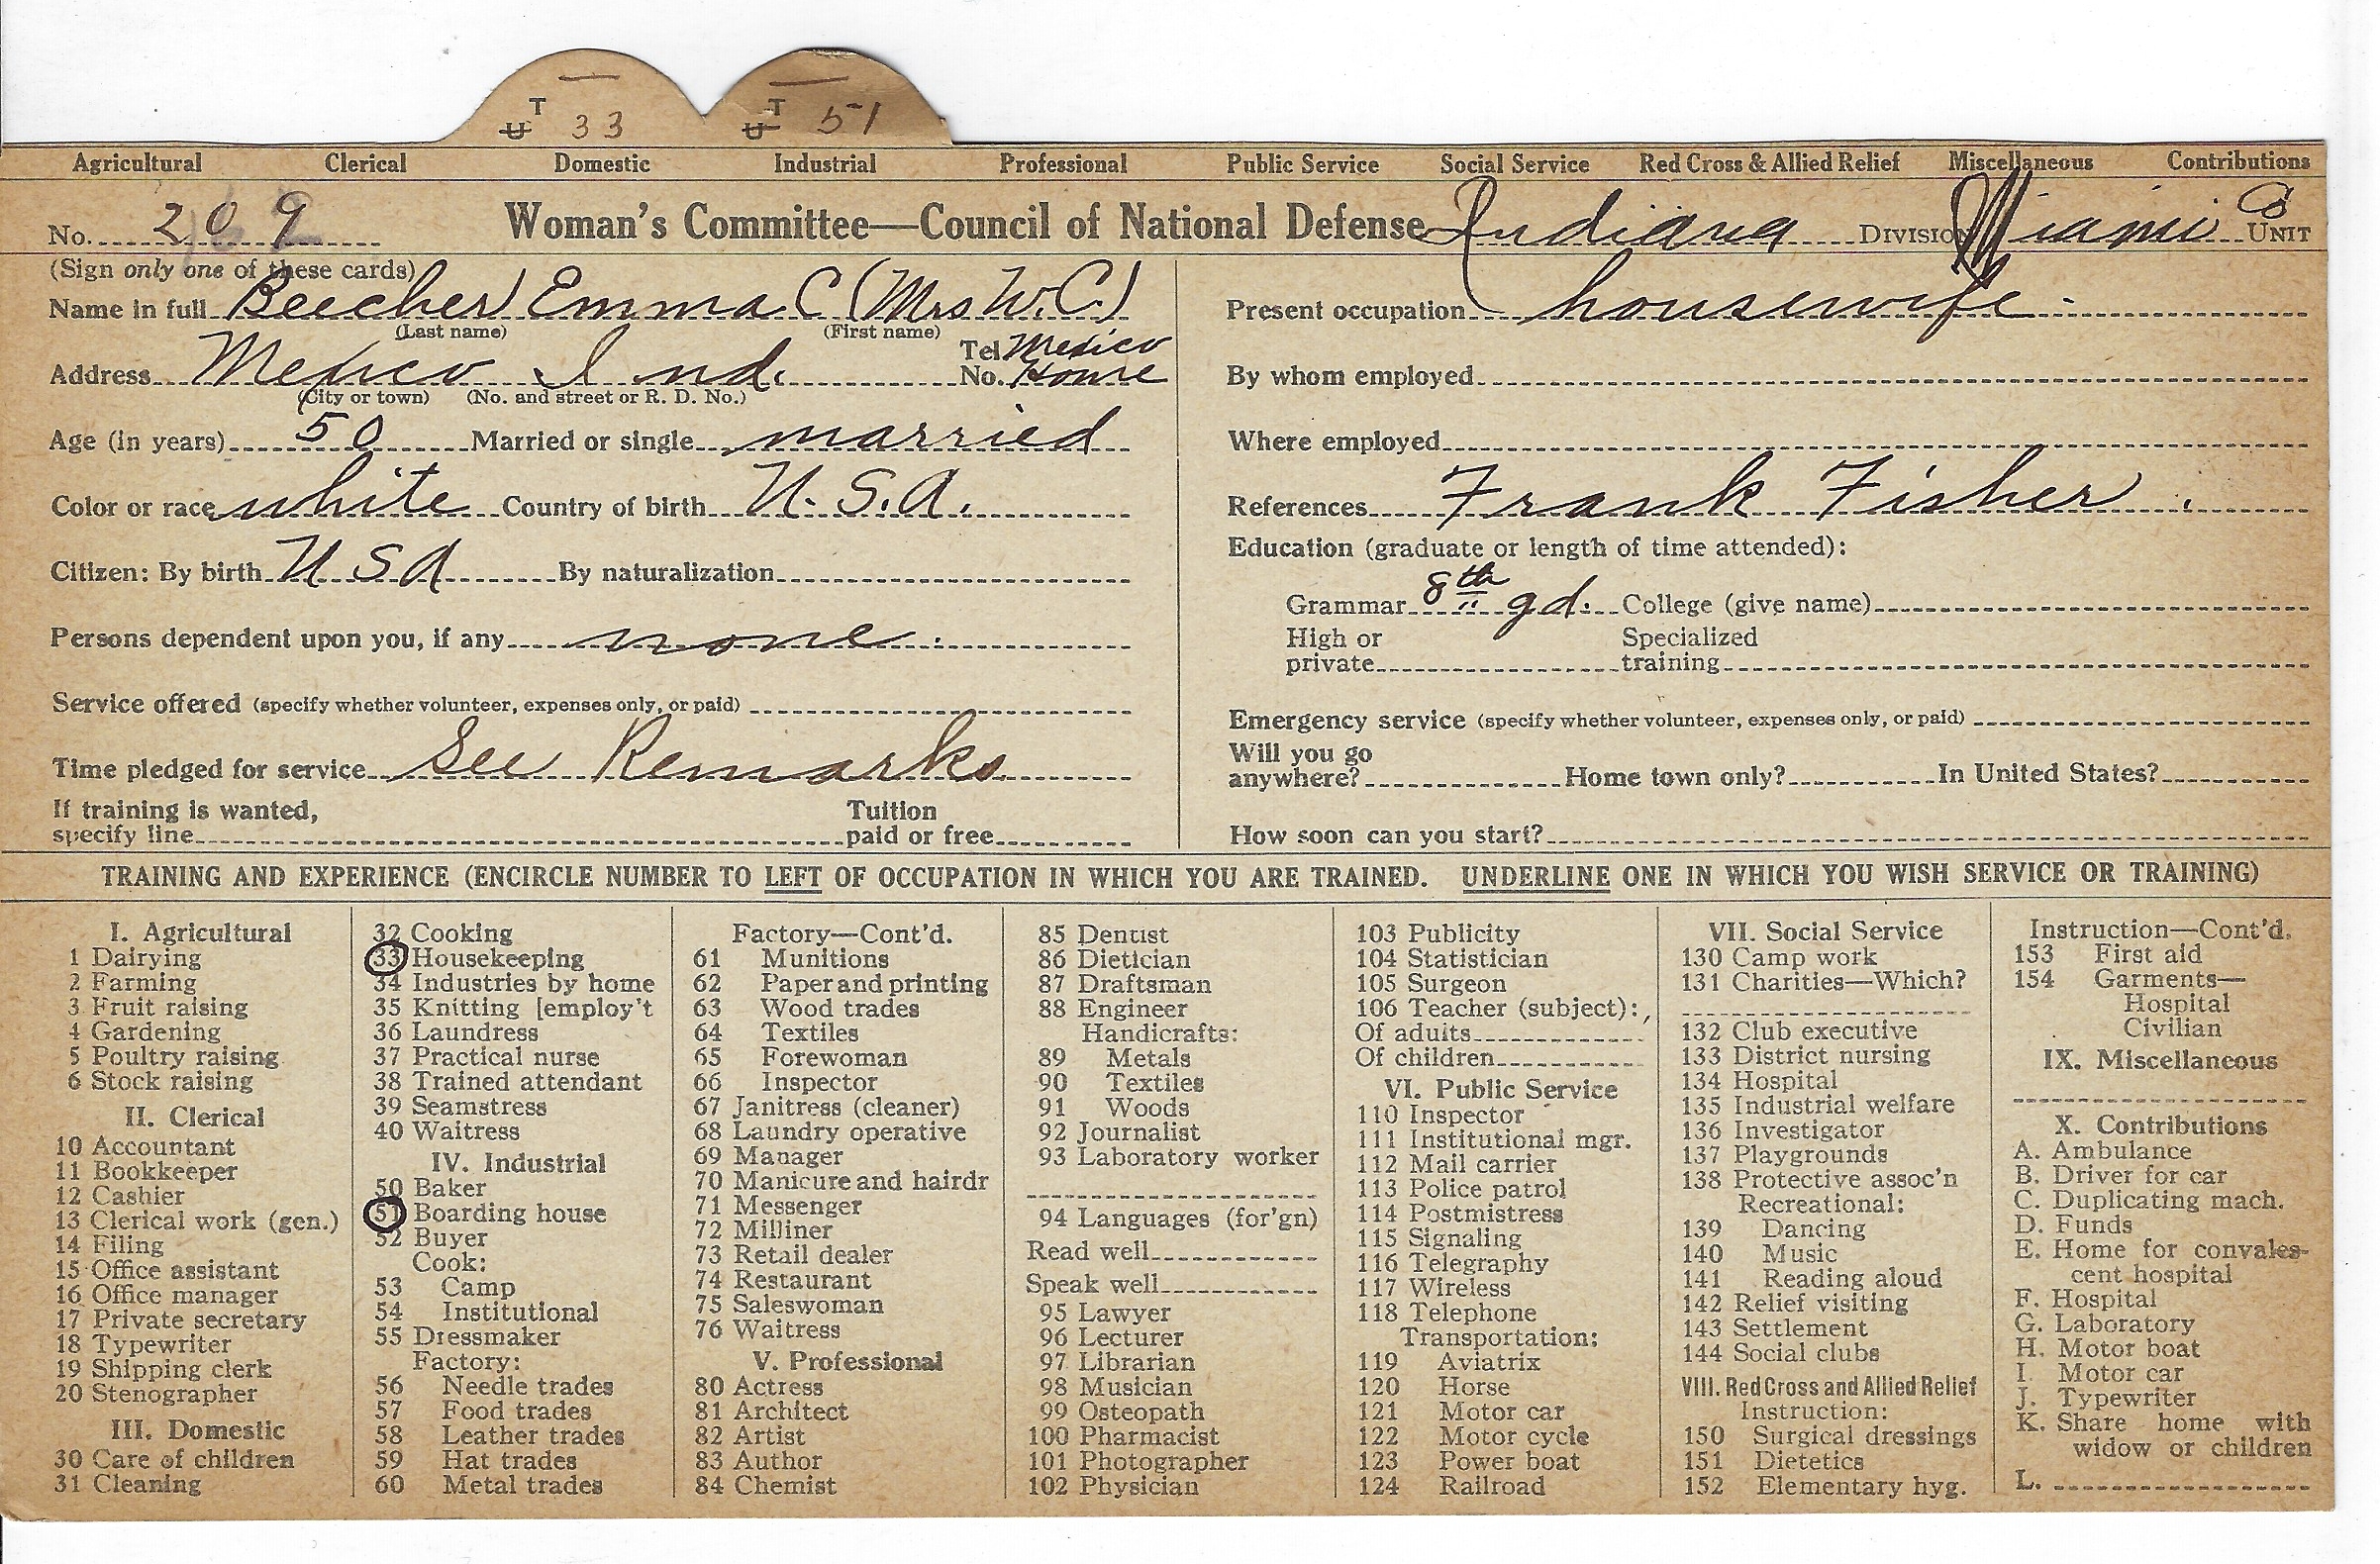 T
U 33
T
U 51
Agricultural Clerical Domestic Industrial Professional Public Service Social Service Red Cross & Allied Relief Miscellaneous Contributions
No. 209 Woman's Committee—Council of National Defense Indiana DIVISION Miami Co UNIT
(Sign only one of these cards)
Name in full Beecher Emma C (Mrs W.C.)
(Last name) (First name)
Address Mexico Ind. Tel. No. Mexico Home
(City or town) (No. and street or R. D. No.)
Age (in years) 50 Married or single married
Color or race white Country of birth U.S.A.
Citizen: By birth USA By naturalization
Persons dependent upon you, if any none.
Service offered (specify whether volunteer, expenses only, or paid)
Time pledged for service See Remarks
If training is wanted, Tuition
specify line paid or free
Present occupation housewife
By whom employed
Where employed
References Frank Fisher.
Education (graduate or length of time attended):
Grammar 8th gd. College (give name)
High or Specialized
private training
Emergency service (specify whether volunteer, expenses only, or paid)
Will you go
anywhere? Home town only? In United States?
How soon can you start?
TRAINING AND EXPERIENCE (ENCIRCLE NUMBER TO LEFT OF OCCUPATION IN WHICH YOU ARE TRAINED. UNDERLINE ONE IN WHICH YOU WISH SERVICE OR TRAINING)
I. Agricultural
1 Dairying
2 Farming
3 Fruit raising
4 Gardening
5 Poultry raising
6 Stock raising
II. Clerical
10 Accountant
11 Bookkeeper
12 Cashier
13 Clerical work (gen.)
14 Filing
15 Office assistant
16 Office manager
17 Private secretary
18 Typewriter
19 Shipping clerk
20 Stenographer
III. Domestic
30 Care of children
31 Cleaning
32 Cooking
33 Housekeeping
34 Industries by home
35 Knitting [employ't
36 Laundress
37 Practical nurse
38 Trained attendant
39 Seamstress
40 Waitress
IV. Industrial
50 Baker
51 Boarding house
52 Buyer
Cook:
53 Camp
54 Institutional
55 Dressmaker
Factory:
56 Needle trades
57 Food trades
58 Leather trades
59 Hat trades
60 Metal trades
Factory—Cont'd.
61 Munitions
62 Paper and printing
63 Wood trades
64 Textiles
65 Forewoman
66 Inspector
67 Janitress (cleaner)
68 Laundry operative
69 Manager
70 Manicure and hairdr
71 Messenger
72 Milliner
73 Retail dealer
74 Restaurant
75 Saleswoman
76 Waitress
V. Professional
80 Actress
81 Architect
82 Artist
83 Author
84 Chemist
85 Dentist
86 Dietician
87 Draftsman
88 Engineer
Handicrafts:
89 Metals
90 Textiles
91 Woods
92 Journalist
93 Laboratory worker
94 Languages (for'gn)
Read well
Speak well
95 Lawyer
96 Lecturer
97 Librarian
98 Musician
99 Osteopath
100 Pharmacist
101 Photographer
102 Physician
103 Publicity
104 Statistician
105 Surgeon
106 Teacher (subject):
Of adults
Of children
VI. Public Service
110 Inspector
111 Institutional mgr.
112 Mail carrier
113 Police patrol
114 Postmistress
115 Signaling
116 Telegraphy
117 Wireless
118 Telephone
Transportation:
119 Aviatrix
120 Horse
121 Motor car
122 Motor cycle
123 Power boat
124 Railroad
VII. Social Service
130 Camp work
131 Charities—Which?
132 Club executive
133 District nursing
134 Hospital
135 Industrial welfare
136 Investigator
137 Playgrounds
138 Protective assoc'n
Recreational:
139 Dancing
140 Music
141 Reading aloud
142 Relief visiting
143 Settlement
144 Social clubs
VIII. Red Cross and Allied Relief
Instruction:
150 Surgical dressings
151 Dietetics
152 Elementary hyg.
Instruction—Cont'd.
153 First aid
154 Garments—
Hospital
Civilian
IX. Miscellaneous
X. Contributions
A. Ambulance
B. Driver for car
C. Duplicating mach.
D. Funds
E. Home for convales-
cent hospital
F. Hospital
G. Laboratory
H. Motor boat
I. Motor car
J. Typewriter
K. Share home with
widow or children
L.